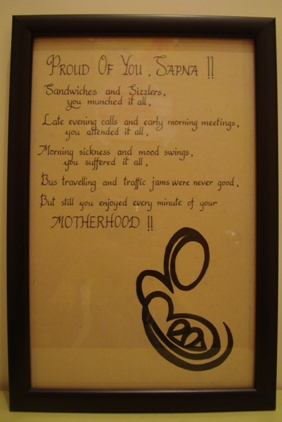 PROUD OF YOU, SAPNA !!
Sandwiches and Sizzlers,
you munched it all,
Late evening calls and early morning meetings,
you attended it all,
Morning sickness and mood swings,
you suffered it all,
Bus travelling and traffic jams were never good,
But still you enjoyed every minute of your
MOTHERHOOD !!